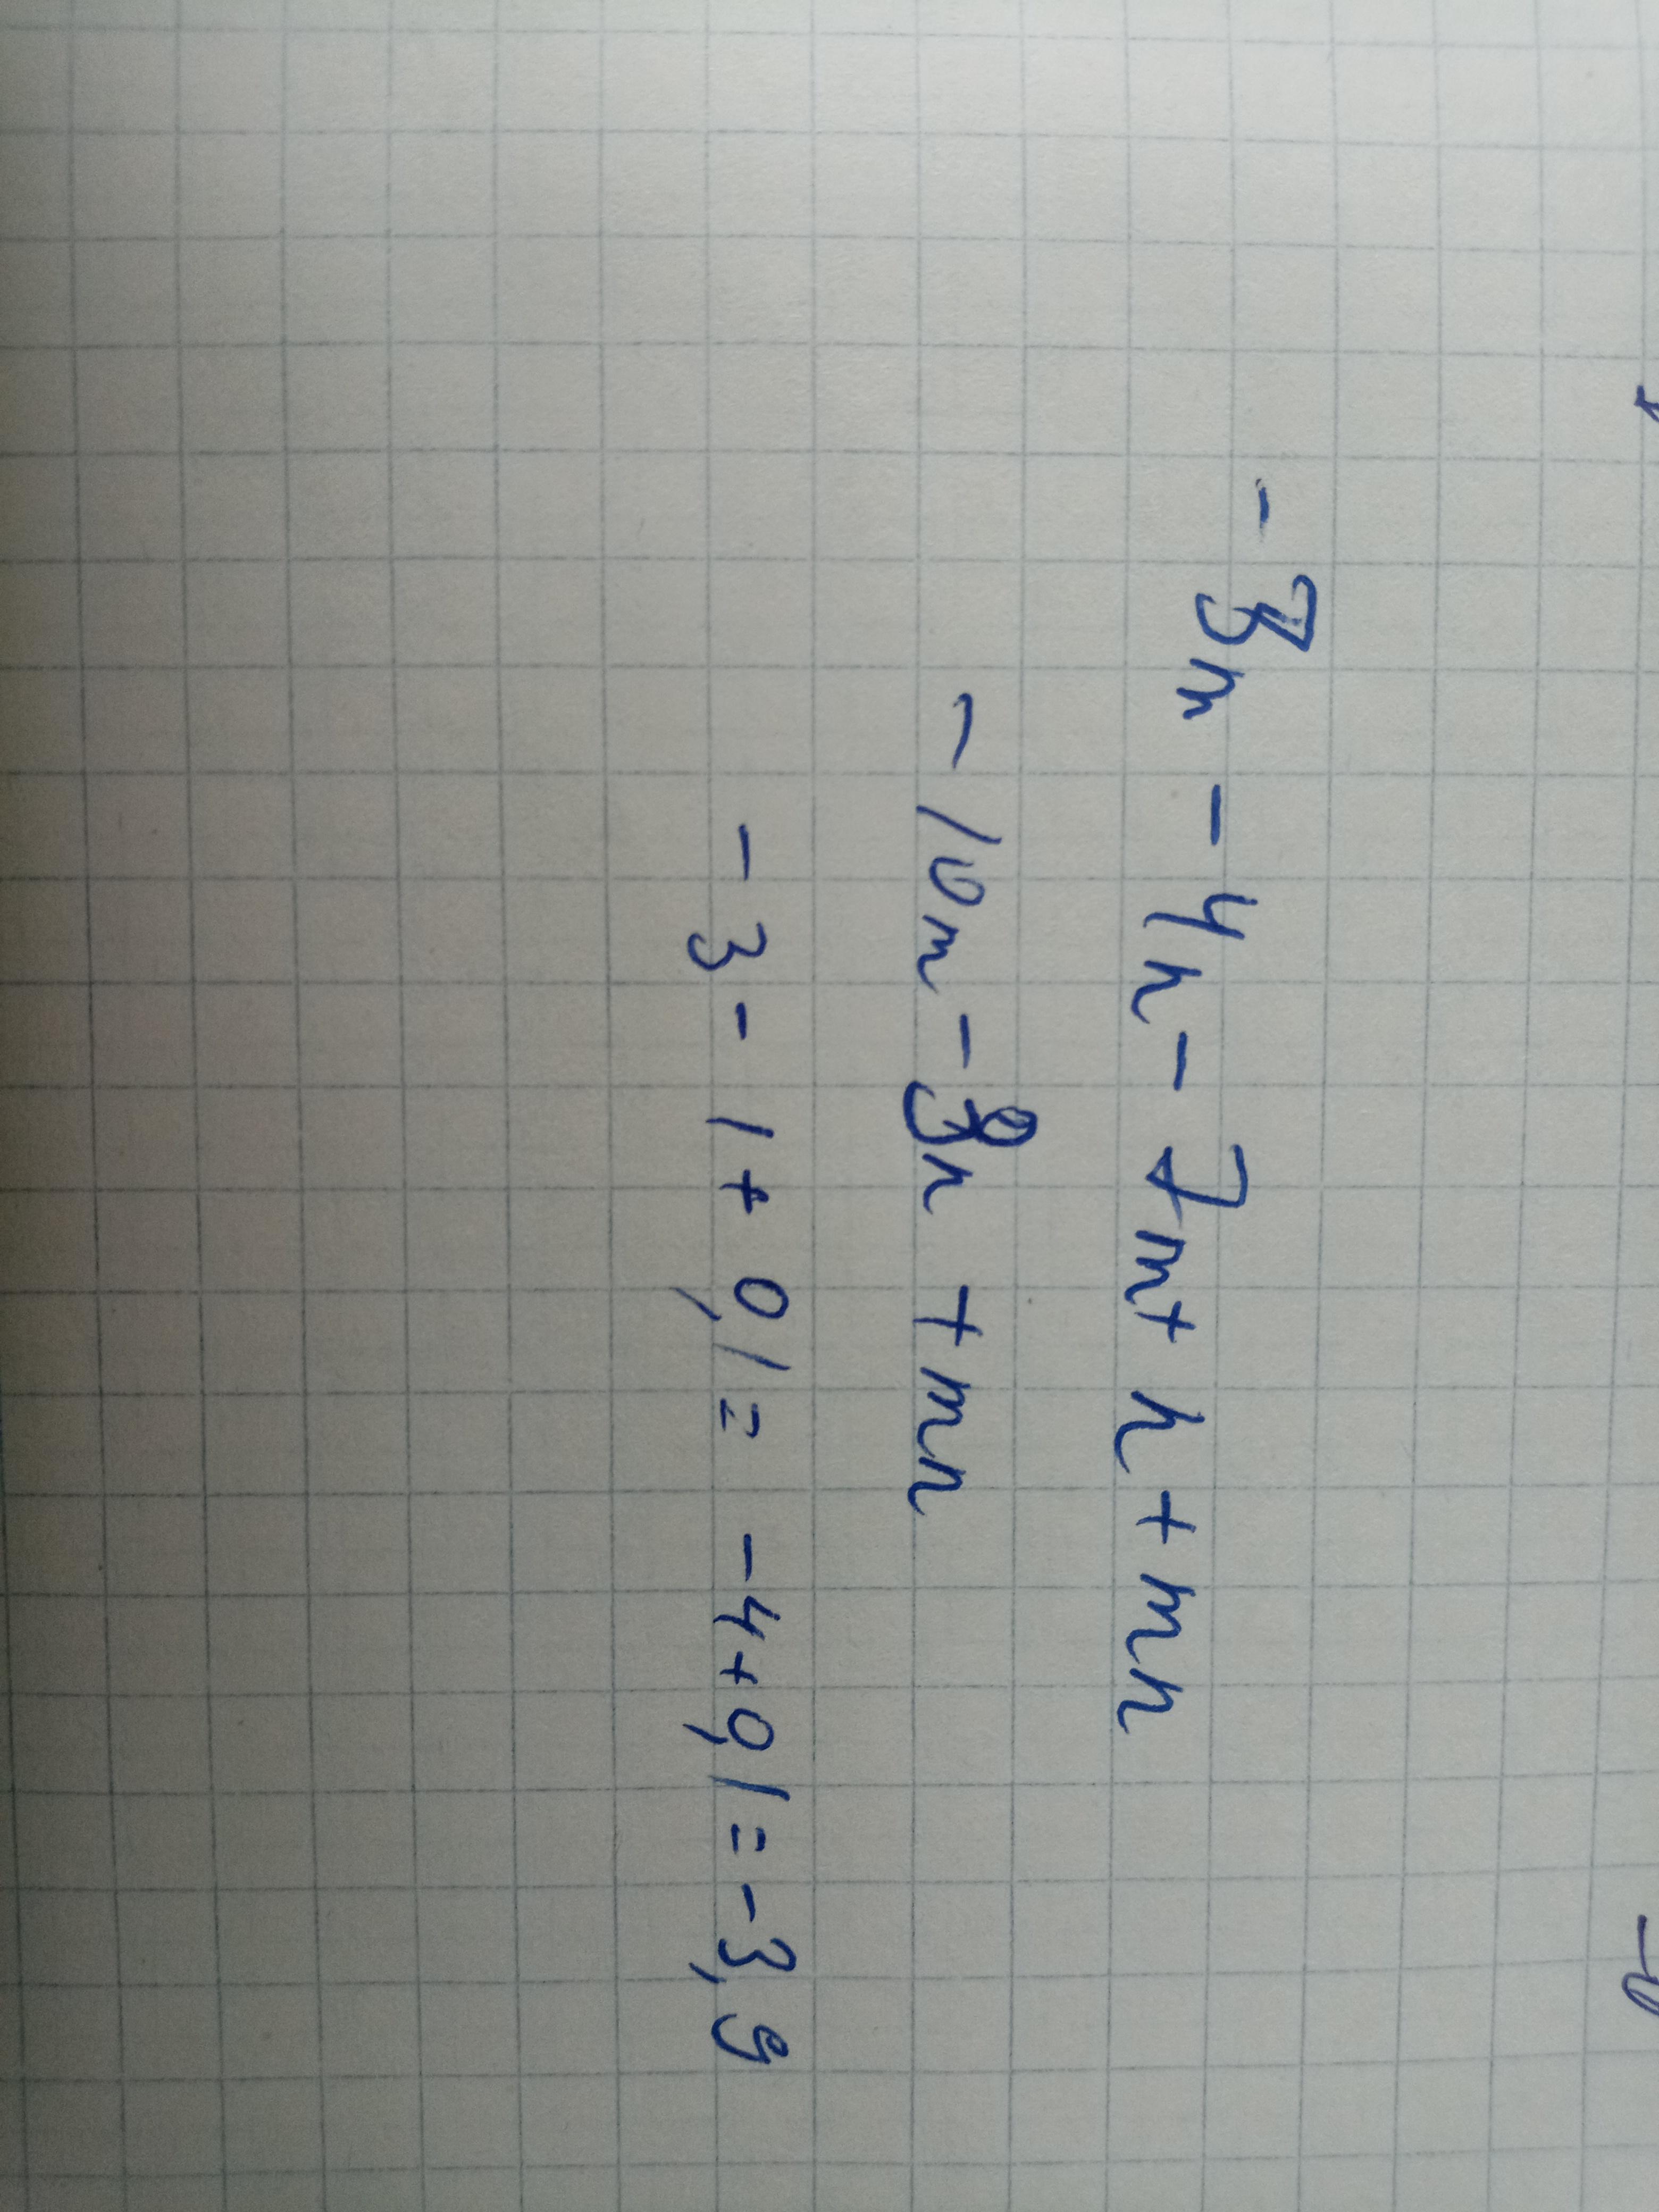 -3m - 4n - 7m + n + mn
-10m - 3n + mn
-3 - 1 + 0,1 = -4+0,1 = -3,9